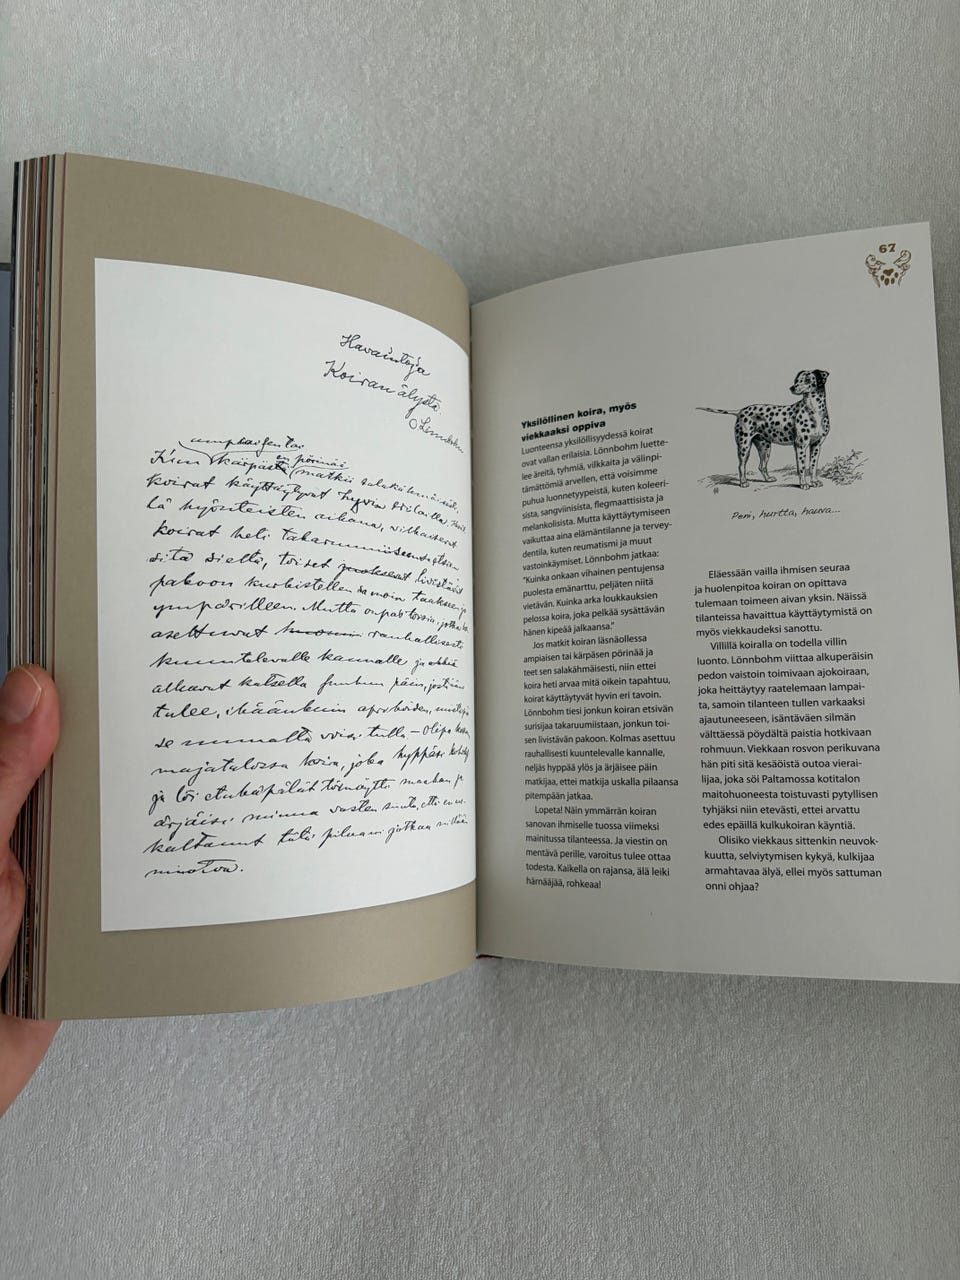 Havaintoja
Koiran älystä.
O Lönnbohm
ampiaisen tai
Kun kärpästen pörinää matkii salakähmäisesti,
koirat käyttäytyvat hyvin eri tavalla.
lä hyönteisten aikana, vilkaisevat
koirat heti takaruumiiseensa etsien
sitä sieltä, toiset livistävät
pakoon kurkistellen samoin taakseen ja
ympärilleen. Mutta onpa toisia, jotka
asettuvat rauhallisesti
kuuntelevalle kannalle ja
alkavat katsella päin, josta ääni
tulee,
se muualta voisi tulla — Olipa
majatalossa koira, joka hyppäsi
ja löi etukäpälät maahan ja
ärjäisi minua vasten suuta, etten
kaltaunut tätä pilaani jatkaa
minotva.
67
Yksilöllinen koira, myös
viekkaaksi oppiva
Luonteensa yksilöllisyydessä koirat
ovat vallan erilaisia. Lönnbohm luette-
lee äreitä, tyhmiä, vilkkaita ja välinpi-
tämättömiä arvellen, että voisimme
puhua luonnetyypeistä, kuten koleeri-
sista, sangviinisista, flegmaattisista ja
melankolisista. Mutta käyttäytymiseen
vaikuttaa aina elämäntilanne ja tervey-
dentila, kuten reumatismi ja muut
vastoinkäymiset. Lönnbohm jatkaa:
"Kuinka onkaan vihainen pentujensa
puolesta emänarttu, peljäten niitä
vietävän. Kuinka arka loukkauksien
pelossa koira, joka pelkää sysättävän
hänen kipeää jalkaansa."
Jos matkit koiran läsnäollessa
ampiaisen tai kärpäsen pörinää ja
teet sen salakähmäisesti, niin ettei
koira heti arvaa mitä oikein tapahtuu,
koirat käyttäytyvät hyvin eri tavoin.
Lönnbohm tiesi jonkun koiran etsivän
surisijaa takaruumiistaan, jonkun toi-
sen livistävän pakoon. Kolmas asettuu
rauhallisesti kuuntelevalle kannalle,
neljäs hyppää ylös ja ärjäisee päin
matkijaa, ettei matkija uskalla pilaansa
pitempään jatkaa.
Lopeta! Näin ymmärrän koiran
sanovan ihmiselle tuossa viimeksi
mainitussa tilanteessa. Ja viestin on
mentävä perille, varoitus tulee ottaa
todesta. Kaikella on rajansa, älä leiki
härnääjää, rohkeaa!
Peni, hurtta, hauva...
Eläessään vailla ihmisen seuraa
ja huolenpitoa koiran on opittava
tulemaan toimeen aivan yksin. Näissä
tilanteissa havaittua käyttäytymistä on
myös viekkaudeksi sanottu.
Villillä koiralla on todella villin
luonto. Lönnbohm viittaa alkuperäisin
pedon vaistoin toimivaan ajokoiraan,
joka heittäytyy raatelemaan lampai-
ta, samoin tilanteen tullen varkaaksi
ajautuneeseen, isäntäväen silmän
välttäessä pöydältä paistia hotkivaan
rohmuun. Viekkaan rosvon perikuvana
hän piti sitä kesäöistä outoa vierai-
lijaa, joka söi Paltamossa kotitalon
maitohuoneesta toistuvasti pytyllisen
tyhjäksi niin etevästi, ettei arvattu
edes epäillä kulkukoiran käyntiä.
Olisiko viekkaus sittenkin neuvok-
kuutta, selviytymisen kykyä, kulkijaa
armahtavaa älyä, ellei myös sattuman
onni ohjaa?